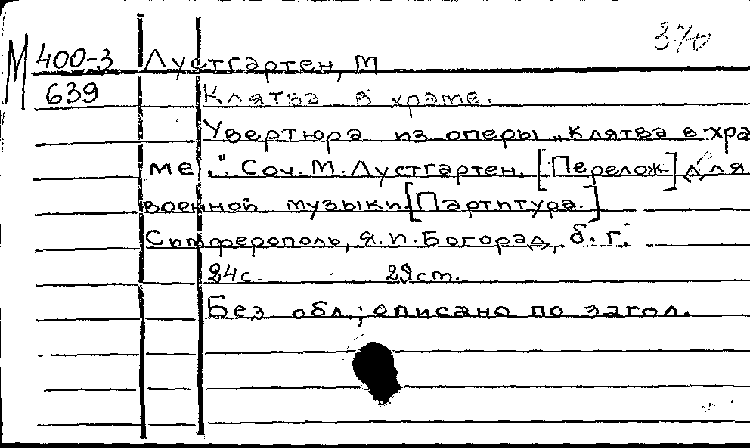 370
М 400-3 Лустгартен, М
639 Клятва в храме.
Увертюра из оперы „Клятва в хра
ме." Соч. М. Лустгартен. [Перелож] для
военной музыки [Партитура.]
Симферополь, Я.П. Богорад, б. г.
24с. 29ст.
Без обл.; описано по загол.